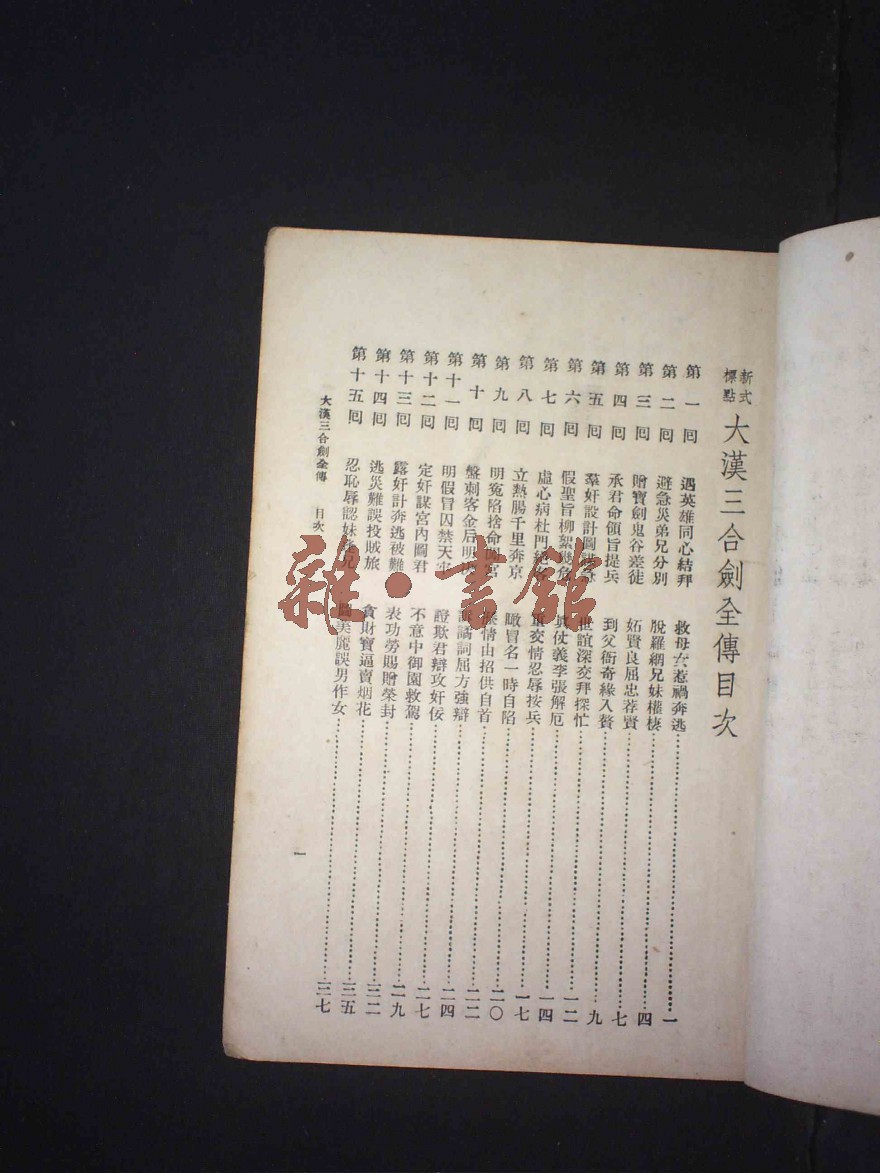 新式標點 大漢三合劍全傳目次
第一囘 遇英雄同心結拜 救母女惹禍奔逃 一
第二囘 避急災弟兄分別 脫羅網兄妹權棲 四
第三囘 贈寶劍鬼谷差徒 妬賢良屈忠荐賢 七
第四囘 承君命領旨提兵 到父衙奇緣入贅 九
第五囘 羣奸設計圖 世誼深交拜探忙 一二
第六囘 假聖旨柳絮 仗義李張解厄 一四
第七囘 虛心病杜門 交情忍辱按兵 一七
第八囘 立熱腸千里奔京 瞰冒名一時自陷 二〇
第九囘 明冤陷捨命 宮 情由招供自首 二二
第十囘 盤刺客金后明 詞屈方強辯 二四
第十一囘 明假冒囚禁天牢 證欺君辯攻奸佞 二七
第十二囘 定奸謀宮內圖君 不意中御園救駕 二九
第十三囘 露奸計奔逃被難 表功勞賜贈榮封 三二
第十四囘 逃災難誤投賊旅 貪財寶逼賣烟花 三五
第十五囘 忍恥辱認妹 兄 美麗誤男作女 三七
大漢三合劍全傳 目次 一
雜·書館